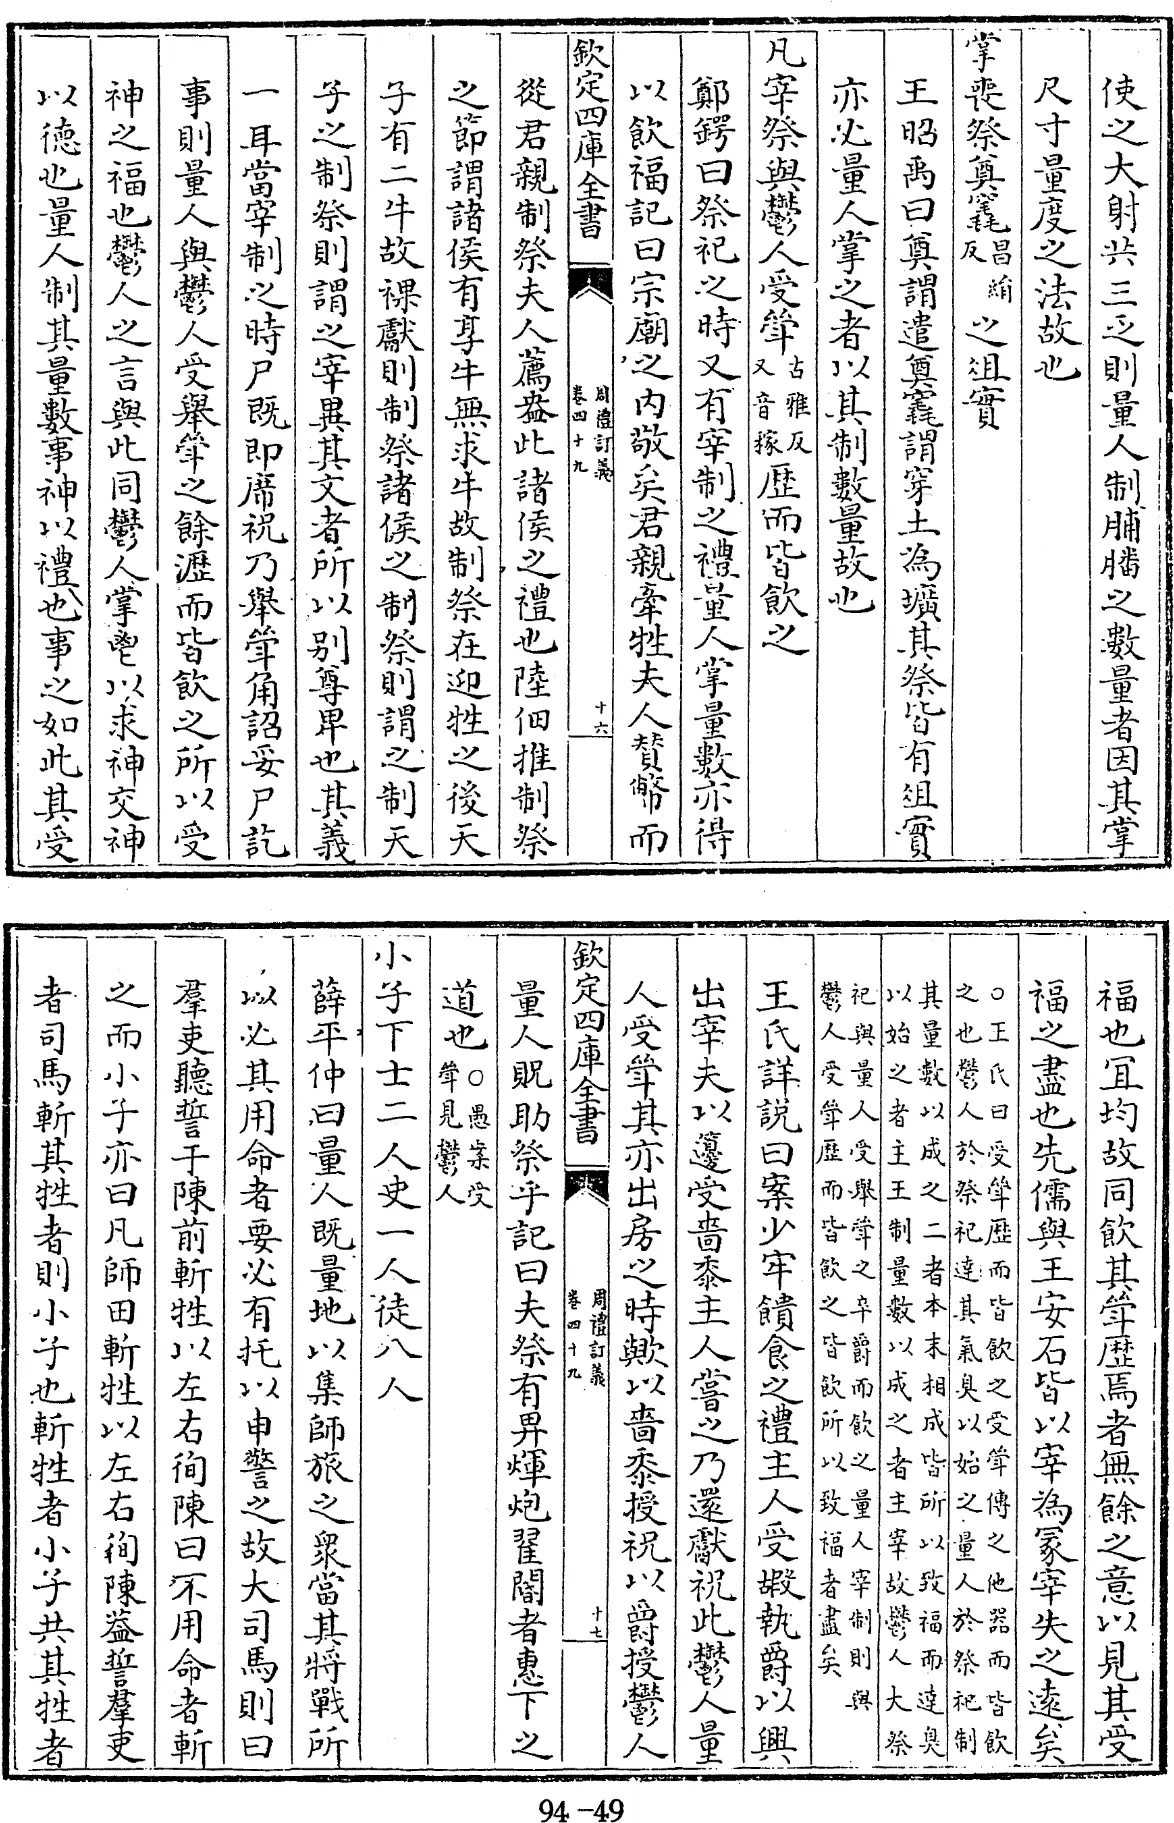 使之大射共三乏則量人制脯膰之數量者因其掌
尺寸量度之法故也
掌喪祭奠竁昌絹反之俎實
王昭禹曰奠謂遣奠竁謂穿土為壙其祭皆有俎實
亦必量人掌之者以其制數量故也
凡宰祭與鬱人受斝古雅反又音稼歷而皆飲之
鄭鍔曰祭祀之時又有宰制之禮量人掌量數亦得
以飲福記曰宗廟之内敬矣君親牽牲夫人賛幣而
欽定四庫全書
周禮訂義
卷四十九
十六
從君親制祭夫人薦盎此諸侯之禮也陸佃推制祭
之節謂諸侯有享牛無求牛故制祭在迎牲之後天
子有二牛故祼獻則制祭諸侯之制祭則謂之制天
子之制祭則謂之宰異其文者所以别尊卑也其義
一耳當宰制之時尸既即席祝乃舉斝角詔妥尸訖
事則量人與鬱人受舉斝之餘瀝而皆飲之所以受
神之福也鬱人之言與此同鬱人掌鬯以求神交神
以徳也量人制其量數事神以禮也事之如此其受
福也宜均故同飲其斝歴焉者無餘之意以見其受
福之盡也先儒與王安石皆以宰為冢宰失之遠矣
○王氏曰受斝歴而皆飲之受斝傳之他器而皆飲
之也鬱人於祭祀達其氣臭以始之量人於祭祀制
其量數以成之二者本末相成皆所以致福而達臭
以始之者主王制量數以成之者主宰故鬱人大祭
祀與量人受舉斝之卒爵而飲之量人宰制則與
鬱人受斝歴而皆飲之皆飲所以致福者盡矣
王氏詳説曰案少牢饋食之禮主人受嘏執爵以興
出宰夫以籩受嗇黍主人嘗之乃還獻祝此鬱人量
人受斝其亦出房之時歟以嗇黍授祝以爵授鬱人
欽定四庫全書
周禮訂義
卷四十九
十七
量人貺助祭乎記曰夫祭有畀煇炮翟閽者惠下之
道也○愚案受斝見鬱人
小子下士二人史一人徒八人
薛平仲曰量人既量地以集師旅之衆當其將戰所
以必其用命者要必有托以申警之故大司馬則曰
羣吏聽誓于陳前斬牲以左右徇陳曰不用命者斬
之而小子亦曰凡師田斬牲以左右徇陳葢誓羣吏
者司馬斬其牲者則小子也斬牲者小子共其牲者
94-49